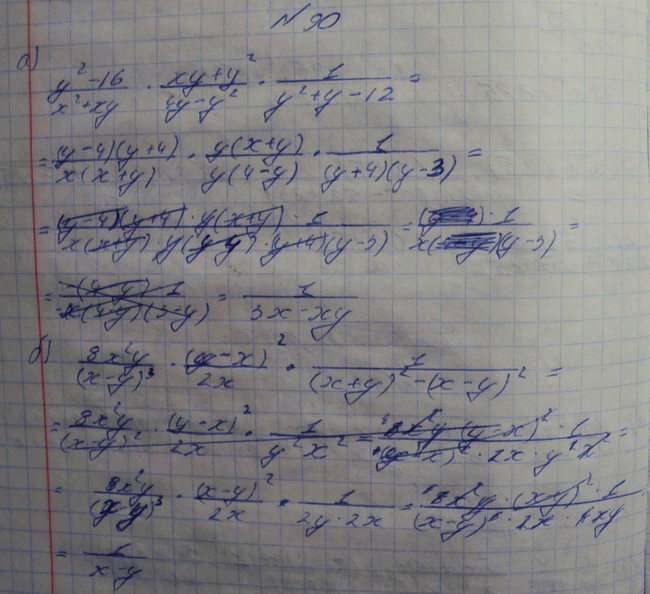 № 90
а) (y²-16)/(x²+xy) · (xy+y²)/(4y-y²) · 1/(y²+y-12) =
= (y-4)(y+4)/(x(x+y)) · y(x+y)/(y(4-y)) · 1/((y+4)(y-3)) =
= ((y-4)(y+4)·y(x+y)·1)/(x(x+y)·y(y-4)·(y+4)(y-3)) = 1/(x(y-3)) =
= 1/(3x-xy)
б) 8x²y/(x-y)³ · (y-x)²/2x · 1/((x+y)²-(x-y)²) =
= 8x²y/(x-y)² · (y-x)²/2x
= 8x²y/(x-y)³ · (x-y)²/2x · 1/(2y·2x) = (8x²y·(x-y)²·1)/((x-y)³·2x·4xy)
= 1/(x-y)